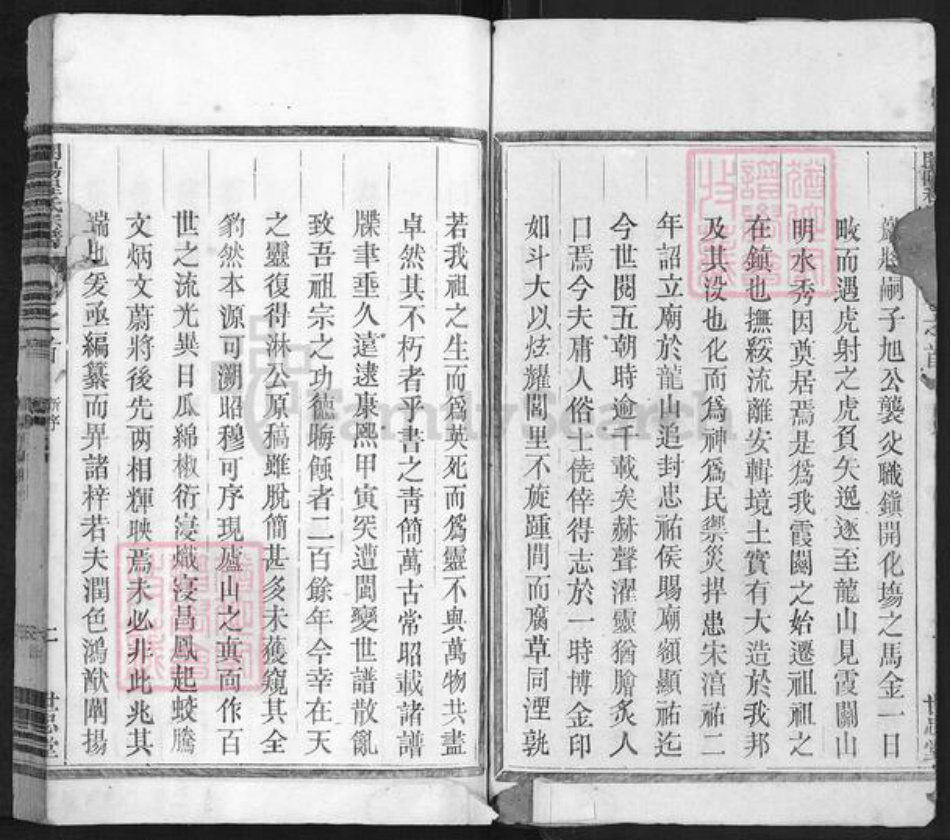 嗣子旭公襲父職鎮開化塲之馬金一日
畋而遇虎射之虎負矢逸逐至龍山見霞關山
明水秀因奠居焉是爲我霞關之始遷祖祖之
在鎮也撫綏流離安輯境土實有大造於我邦
及其没也化而爲神爲民禦災捍患宋淳祐二
年詔立廟於龍山追封忠祐侯賜廟額顯祐迄
今世閱五朝時逾千載矣赫聲濯靈猶膾炙人
口焉今夫庸人俗士僥倖得志於一時博金印
如斗大以炫耀閭里不旋踵間而腐草同湮孰
若我祖之生而爲英死而爲靈不與萬物共盡
卓然其不朽者乎書之靑簡萬古常昭載諸譜
牒聿垂久遠逮康熙甲寅突遭閩變世譜散亂
致吾祖宗之功德晦蝕者二百餘年今幸在天
之靈復得淋公原稿雖脫簡甚多未獲窺其全
豹然本源可溯昭穆可序現廬山之真面作百
世之流光異日瓜綿椒衍寖熾寖昌鳳起蛟騰
文炳文蔚將後先兩相輝映焉未必非此兆其
端也爰亟編纂而畀諸梓若夫潤色鴻猷闡揚
之首
七
世思堂
FamilySearch